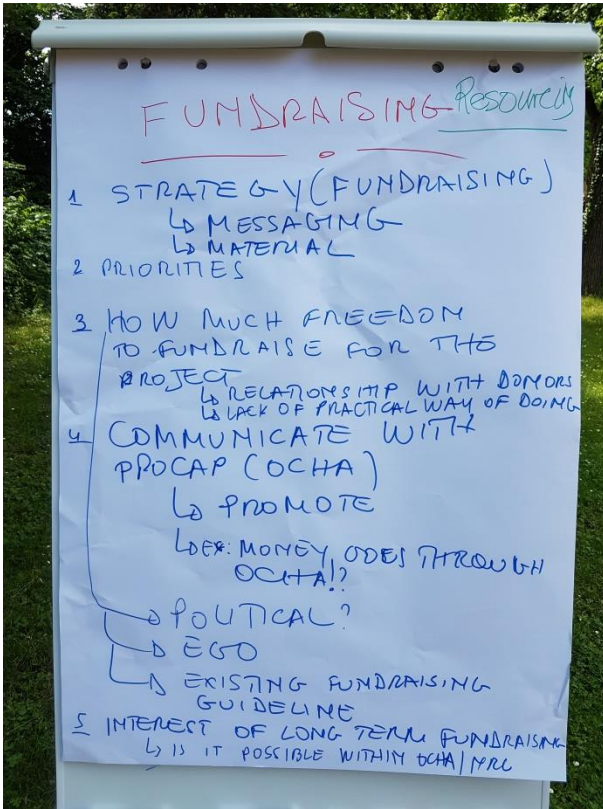 FUNDRAISING Resourcing
1 STRATEGY (FUNDRAISING)
↳ MESSAGING
↳ MATERIAL
2 PRIORITIES
3 HOW MUCH FREEDOM
TO FUNDRAISE FOR THE
PROJECT
↳ RELATIONSHIP WITH DONORS
↳ LACK OF PRACTICAL WAY OF DOING
4 COMMUNICATE WITH
PROCAP (OCHA)
↳ PROMOTE
↳ EX: MONEY GOES THROUGH
OCHA!?
→ POLITICAL?
→ EGO
→ EXISTING FUNDRAISING
GUIDELINE
5 INTEREST OF LONG TERM FUNDRAISING
↳ IS IT POSSIBLE WITHIN OCHA/NRC